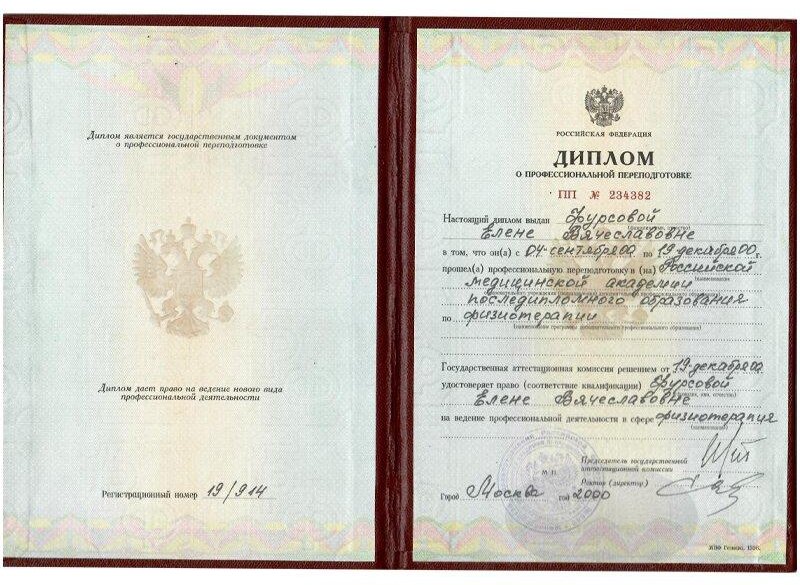 Диплом является государственным документом
о профессиональной переподготовке
Диплом дает право на ведение нового вида
профессиональной деятельности
Регистрационный номер 19/914
РОССИЙСКАЯ ФЕДЕРАЦИЯ
ДИПЛОМ
О ПРОФЕССИОНАЛЬНОЙ ПЕРЕПОДГОТОВКЕ
ПП № 234382
Настоящий диплом выдан Фурсовой
Елене Вячеславовне
в том, что он(а) с 04 сентября 00 по 19 декабря 00 г.
прошел(а) профессиональную переподготовку в (на) Российской
медицинской академии
последипломного образования
по физиотерапии
(наименование программы дополнительного профессионального образования)
Государственная аттестационная комиссия решением от 19 декабря 00
удостоверяет право (соответствие квалификации) Фурсовой
Елене Вячеславовне
на ведение профессиональной деятельности в сфере физиотерапия
(наименование)
Председатель государственной
аттестационной комиссии
М.П.
Ректор (директор)
Город Москва год 2000